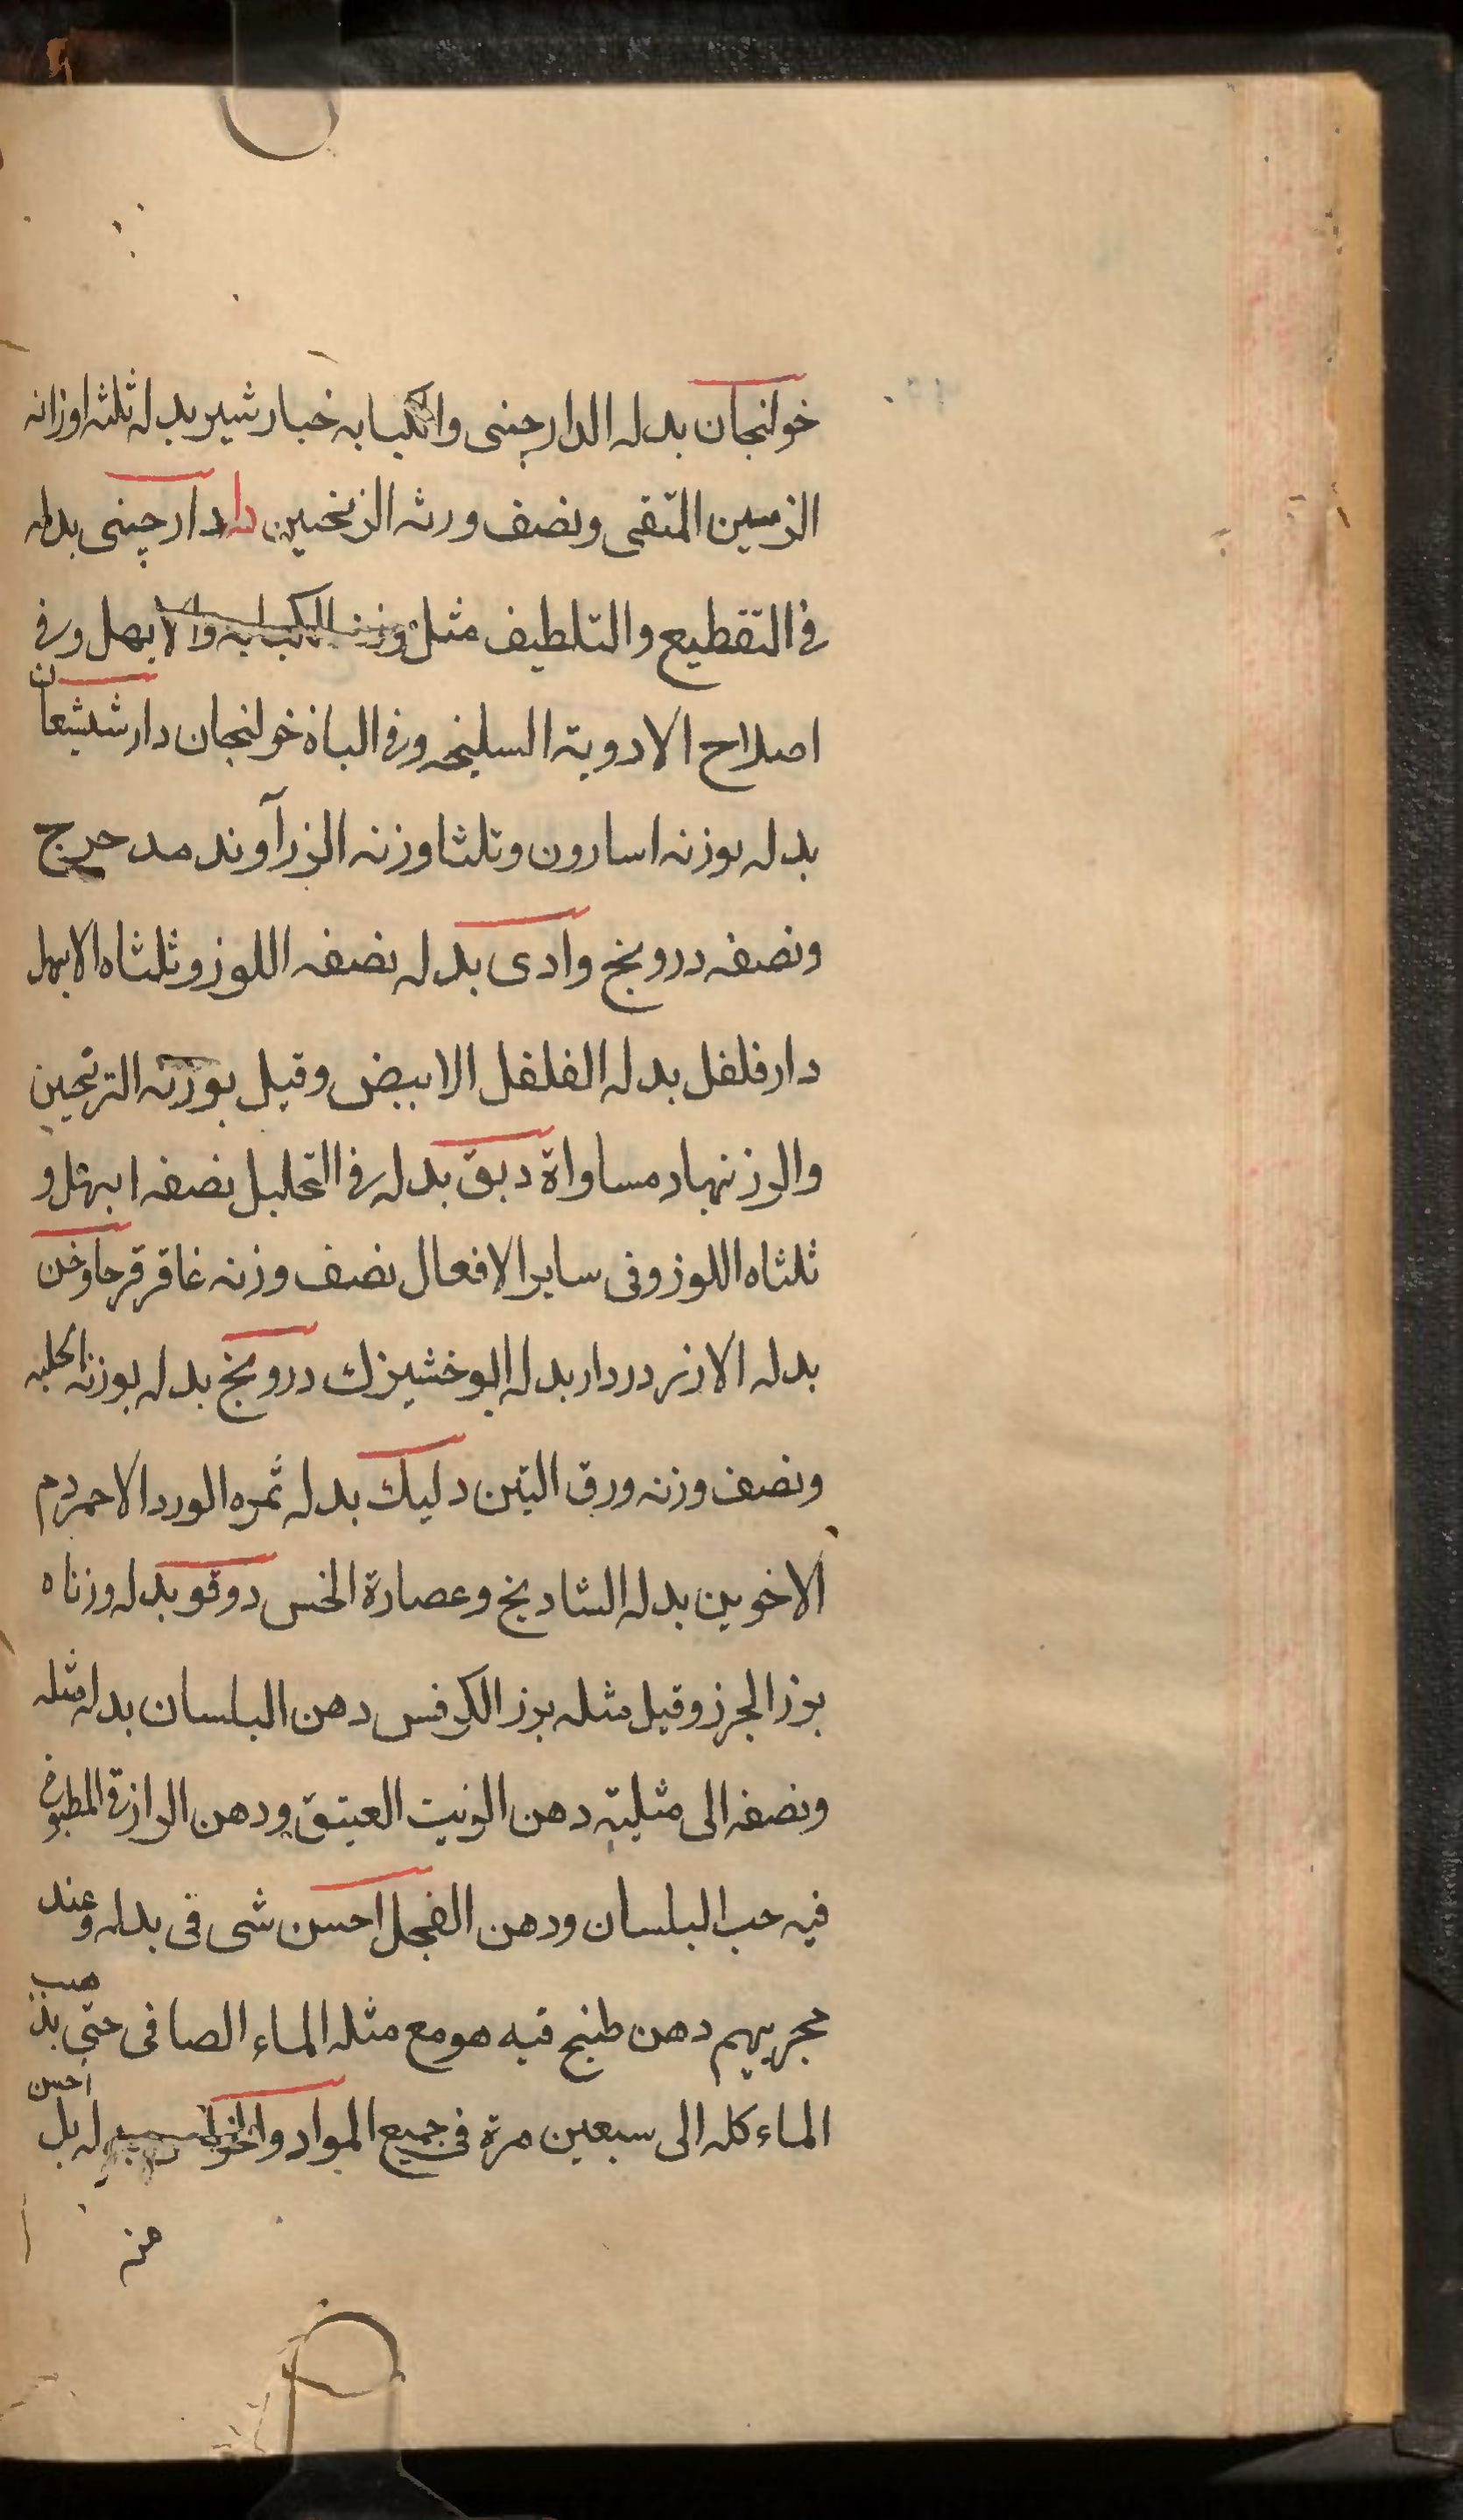 خولنجان بدله الدارچينى والكبابه خيار شير بدله ثلثه اوزانه
الزبيب المتقى ونصف ورثه الزنجبين دا دارچينى بدله
فى التقطيع والتلطيف مثل وزنه الكبابه والابهل وفى
اصلاح الادوية السليخه وفى الباة خولنجان دار شيشعان
بدله بوزنه اسارون وثلثا وزنه الزرآوند مدحرج
ونصفه درونج وادى بدله نصفه اللوز وثلثاه الابهل
دار فلفل بدله الفلفل الابيض وقيل بوزنه الترنجين
والرزنباد مساواة دبق بدله فى التحليل نصفه ابهل و
ثلثاه اللوز وفى ساير الافعال نصف وزنه غاقر قرحا وخن
بدله الارز دردار بدله ابوخشيزك درونج بدله بوزنه الحلبه
ونصف وزنه ورق التين دليك بدله ثمره الورد الاحمر دم
الاخوين بدله الشادنج وعصارة الخس دوقو بدله وزناه
بوز الجرز وقيل مثله بزر الكرفس دهن البلسان بدله مثله
ونصفه الى مثليته دهن الزيت العيتق ودهن الرازقى المطبوخ
فيه حب البلسان ودهن الفجل احسن شى فى بدله وعند
مجربيهم دهن طبخ فيه هو مع مثله الماء الصافى حتى يذهب
الماء كله الى سبعين مرة فى جميع المواد والخواص له بل احسن
منه